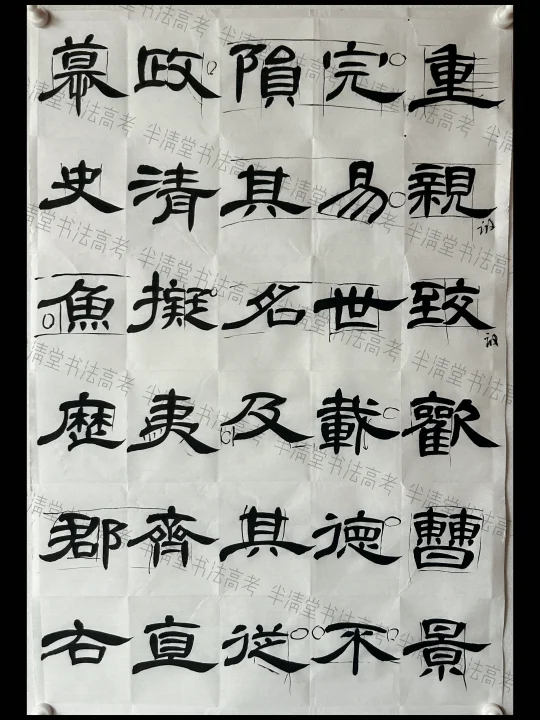 重親致歡曹景
完易世載德不
隕其名及其從
政清擬夷齊直
慕史魚歷郡右
半清堂书法高考